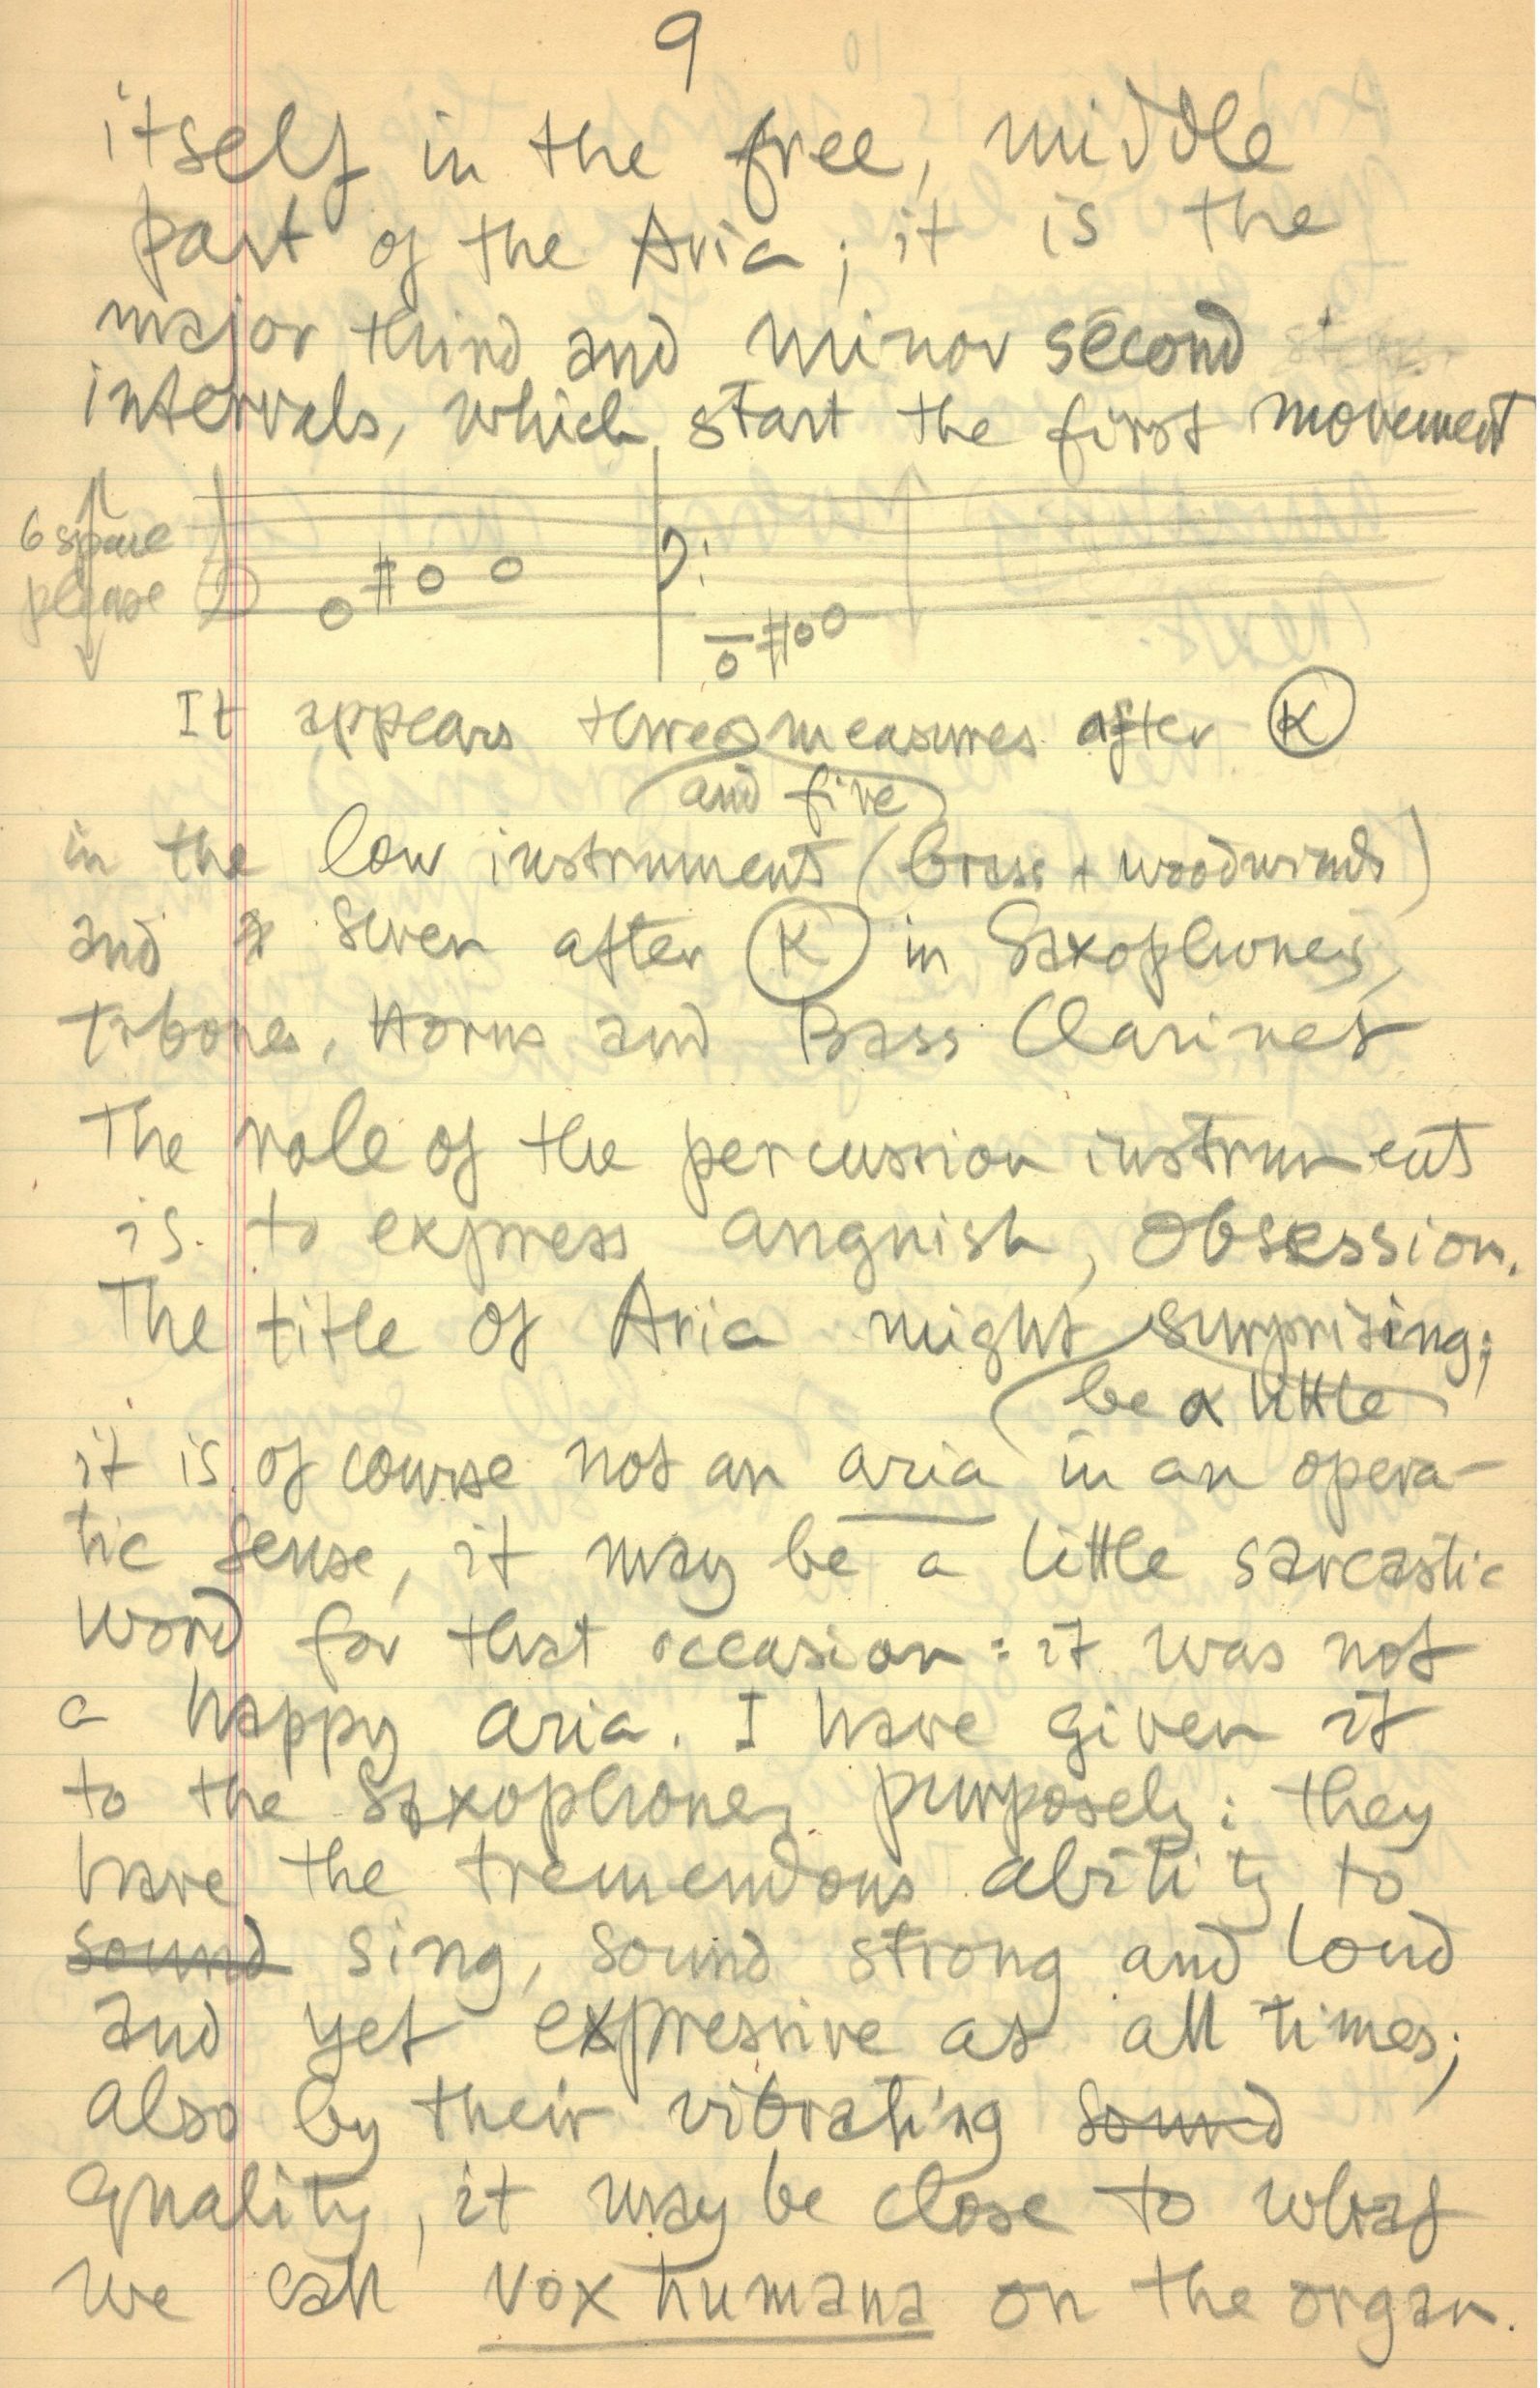 9
itself in the free, middle
part of the Aria; it is the
major third and minor second
intervals, which start the first movement
6 space
please
It appears three measures after K
and five
in the low instruments (brass + woodwinds)
and seven after K in Saxophones,
Trbones, Horns and Bass Clarinet
The role of the percussion instruments
is to express anguish, obsession.
The title of Aria might surprising;
be a little
it is of course not an aria in an opera-
tic sense, it may be a little sarcastic
word for that occasion: it was not
a happy aria. I have given it
to the Saxophones purposely: they
have the tremendous ability to
sound sing, sound strong and loud
and yet expressive at all times;
also by their vibrating sound
quality, it may be close to what
we call vox humana on the organ.